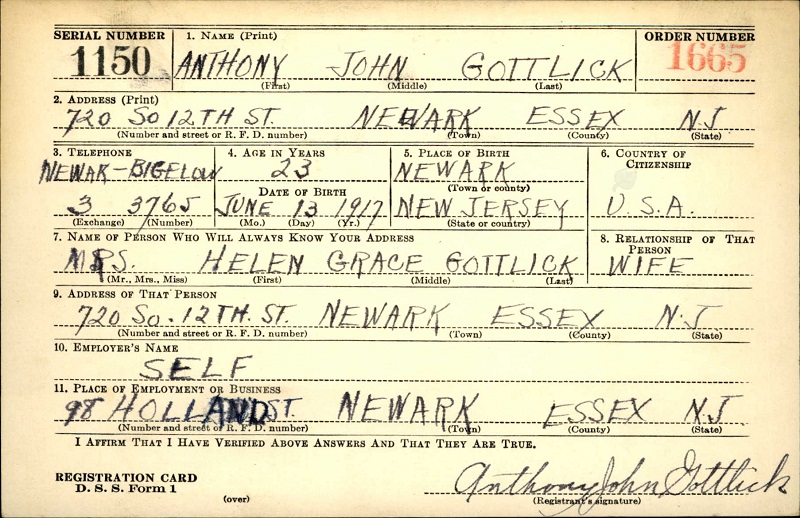 SERIAL NUMBER 1. NAME (Print) ORDER NUMBER
1150 ANTHONY JOHN GOTTLICK 1665
(First) (Middle) (Last)
2. ADDRESS (Print)
720 So 12TH ST. NEWARK ESSEX NJ
(Number and street or R. F. D. number) (Town) (County) (State)
3. TELEPHONE 4. AGE IN YEARS 5. PLACE OF BIRTH 6. COUNTRY OF CITIZENSHIP
NEWAK-BIGELOW 23 NEWARK
DATE OF BIRTH (Town or county)
3 3765 JUNE 13 1917 NEW JERSEY U.S.A.
(Exchange) (Number) (Mo.) (Day) (Yr.) (State or country)
7. NAME OF PERSON WHO WILL ALWAYS KNOW YOUR ADDRESS 8. RELATIONSHIP OF THAT PERSON
MRS. HELEN GRACE GOTTLICK WIFE
(Mr., Mrs., Miss) (First) (Middle) (Last)
9. ADDRESS OF THAT PERSON
720 So. 12TH. ST. NEWARK ESSEX N.J.
(Number and street or R. F. D. number) (Town) (County) (State)
10. EMPLOYER'S NAME
SELF
11. PLACE OF EMPLOYMENT OR BUSINESS
98 HOLLAND ST. NEWARK ESSEX N.J.
(Number and street or R. F. D. number) (Town) (County) (State)
I AFFIRM THAT I HAVE VERIFIED ABOVE ANSWERS AND THAT THEY ARE TRUE.
REGISTRATION CARD
D. S. S. Form 1
(over)
Anthony John Gottlick
(Registrant's signature)